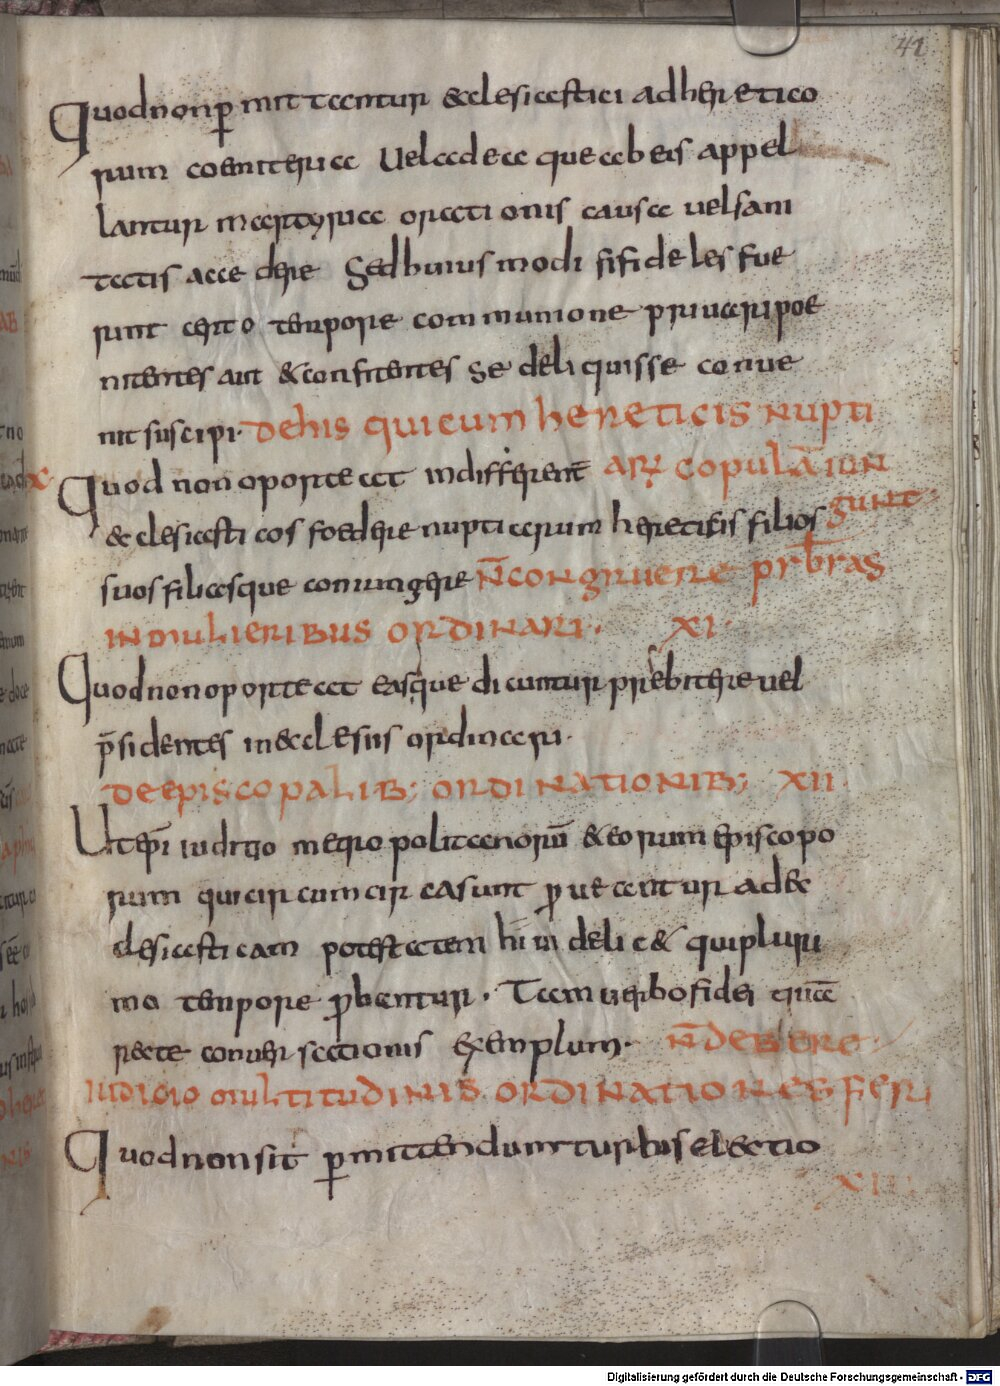 41
Quod non p̄mittantur ecclesiastici ad heretico
rum coemiteria Vel ad ea que ab eis appel
lantur martyria orationis causa vel sani
tatis accedere Sed huius modi si fideles fue
runt certo tempore communione privari poe
nitentes aut & confitentes se deliquisse conve
nit suscipi. De his qui cum hereticis nupti
Quod non oporteat indifferent̄ arꝝ copulā iun
ecclesiasticos foedere nuptiarum hereticis filios gunt
suos filiasque coniungere N̄ congruere prb̄ras
in mulieribus ordinari. XI.
Quod non oporteat easque dicuntur presbitere vel
p̄sidentes in ecclesiis ordinari.
De episcopalib; ordinationib; XII
Ut ep̄i iuditio metropolitanorū & eorum episcopo
rum qui circumcirca sunt ꝓveantur ad ec
clesiasticam potestatem hii videlic& qui pluri
mo tempore ꝓbantur. Tam verbo fidei quā
recte conversationis exemplum. N̄ debere
iudicio multitudinis ordinationes fieri
Quod non sit p̄mittendum turbis electio
XIII
Digitalisierung gefördert durch die Deutsche Forschungsgemeinschaft - DFG